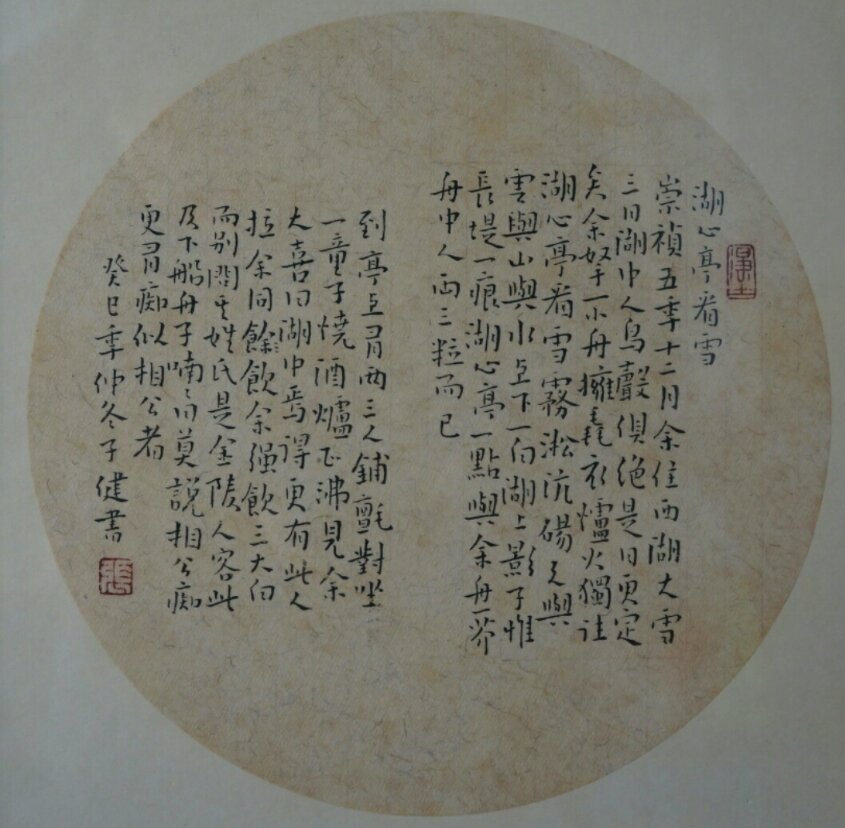 湖心亭看雪
崇禎五年十二月余住西湖大雪
三日湖中人鳥聲俱絕是日更定
矣余拏一小舟擁毳衣爐火獨往
湖心亭看雪霧淞沆碭天與
雲與山與水上下一白湖上影子惟
長堤一痕湖心亭一點與余舟一芥
舟中人兩三粒而已
到亭上有兩三人鋪氈對坐
一童子燒酒爐正沸見余
大喜曰湖中焉得更有此人
拉余同餘飲余強飲三大白
而別問其姓氏是金陵人客此
及下船舟子喃〻曰莫說相公痴
更有痴似相公者
癸巳年仲冬子健書